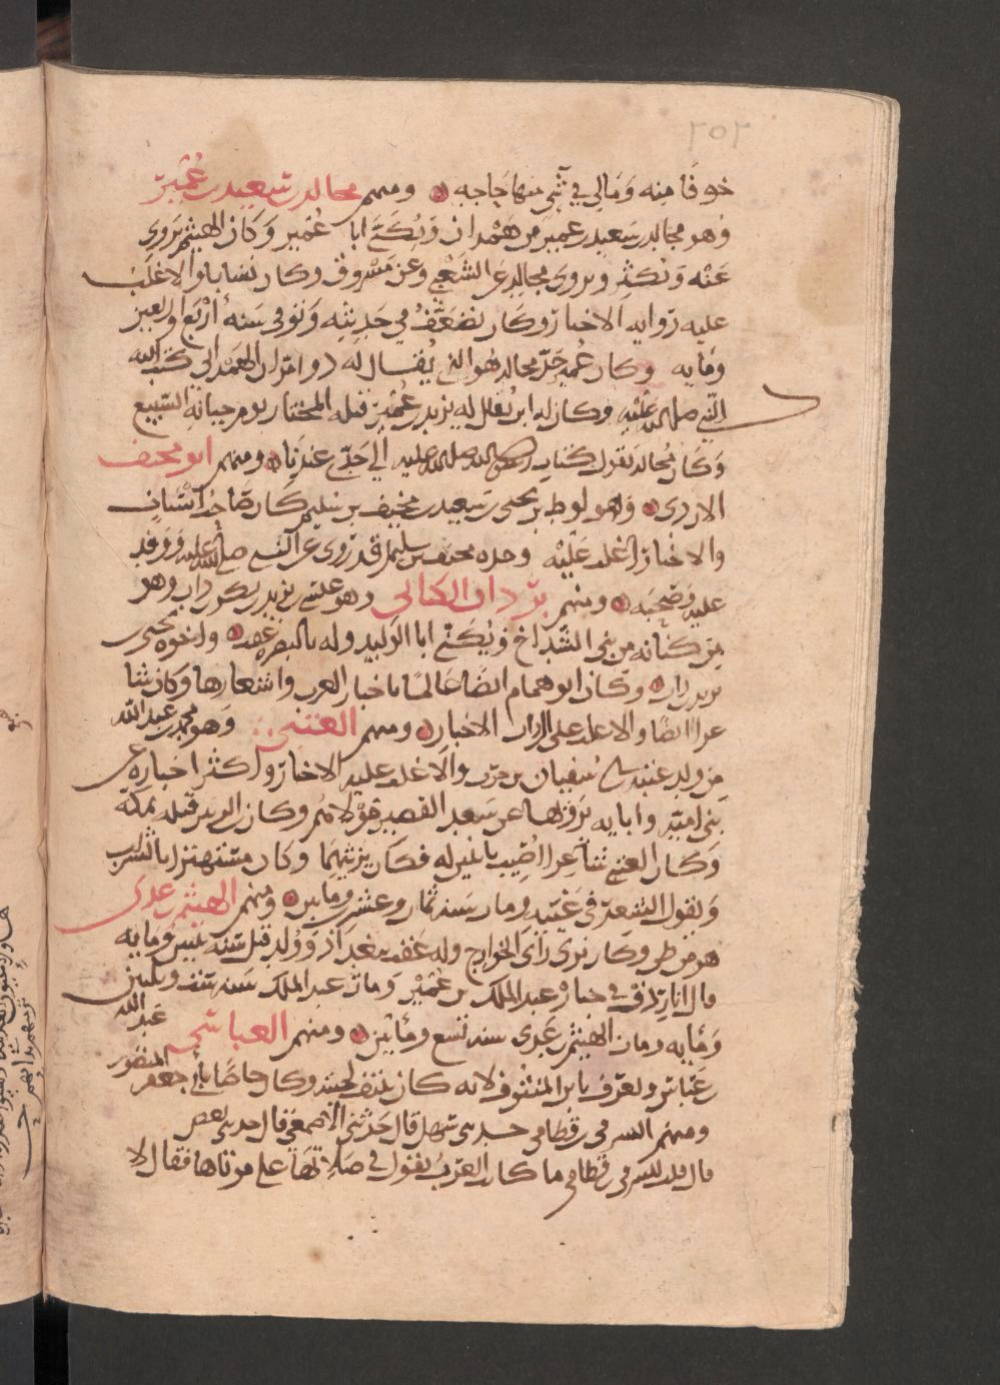 ٢٥٢
خوفا منه ومالي في شي منها حاجه ومنهم مجالد بن سعيد بن عمير
وهو مجالد بن سعيد بن عمير من همدان ويكنى ابا عمير وكان الهيثم يروي
عنه ويكثر ويروي مجالد عن الشعبي وعن مسروق وكان نسابا والاغلب
عليه رواية الاخبار وكان يضعف في حديثه وتوفى سنة اربع واربعين
ومايه وكان عمير جد مجالد هو الذي يقال له ذو امران الهمداني كتب اليه
النبي صلى الله عليه وكان له ابن يقال له يزيد بن عمير قتله المختار يوم جبانة السبيع
وكان مجالد يقول كتاب رسول الله صلى الله عليه الى جدي عندنا ومنهم ابو مخنف
الازدي وهو لوط بن يحيى بن سعيد بن مخنف بن سليم كان صاحب انساب
والاخبار اغلب عليه وجده مخنف بن سليم قد روى عن النبي صلى الله عليه ووفد
عليه وصحبه ومنهم بن داب الكناني وهو عيسى بن يزيد بن بكر بن داب وهو
من كنانه من بني الشداخ ويكنى ابا الوليد وله بالبصرة عقب واخوه يحيى
بن يزيد وكان ابوهما ايضا عالما باخبار العرب واشعارها وكان شا
عرا ايضا والاغلب على ال داب الاخبار ومنهم العتبي وهو محمد بن عبد الله
من ولد عتبة بن ابي سفيان بن حرب والاغلب عليه الاخبار واكثر اخباره عن
بني امية وابايه يرويها عن سعد القصير مولاهم وكان ابن الزبير قتله بمكة
وكان العتبي شاعرا اصيب ببنين له فكان يرثيهم وكان مستهترا بالشراب
ويقول الشعر في عتبة ومات سنة ثمان وعشرين ومايتين ومنهم الهيثم بن عدي
هو من طي وكان يرى راي الخوارج وله عقب ببغداذ وولد قبل سنة ثلثين ومايه
قال انا رزق في جنازة عبد الملك بن عمير ومات عبد الملك سنة ست وثلثين
ومايه ومات الهيثم بن عدي سنة تسع ومايتين ومنهم العباسي عبد الله
بن عباس ويعرف بابن المنتوف لانه كان ينتف لحيته وكان خاصا بابي جعفر المنصور
ومنهم الشرقي بن قطامي حدثني سهل قال حدثني الاصمعي قال حدثني بعض
قال قلت للشرقي بن قطامي ما كانت العرب يقول في صلاتها على موتاها فقال لا